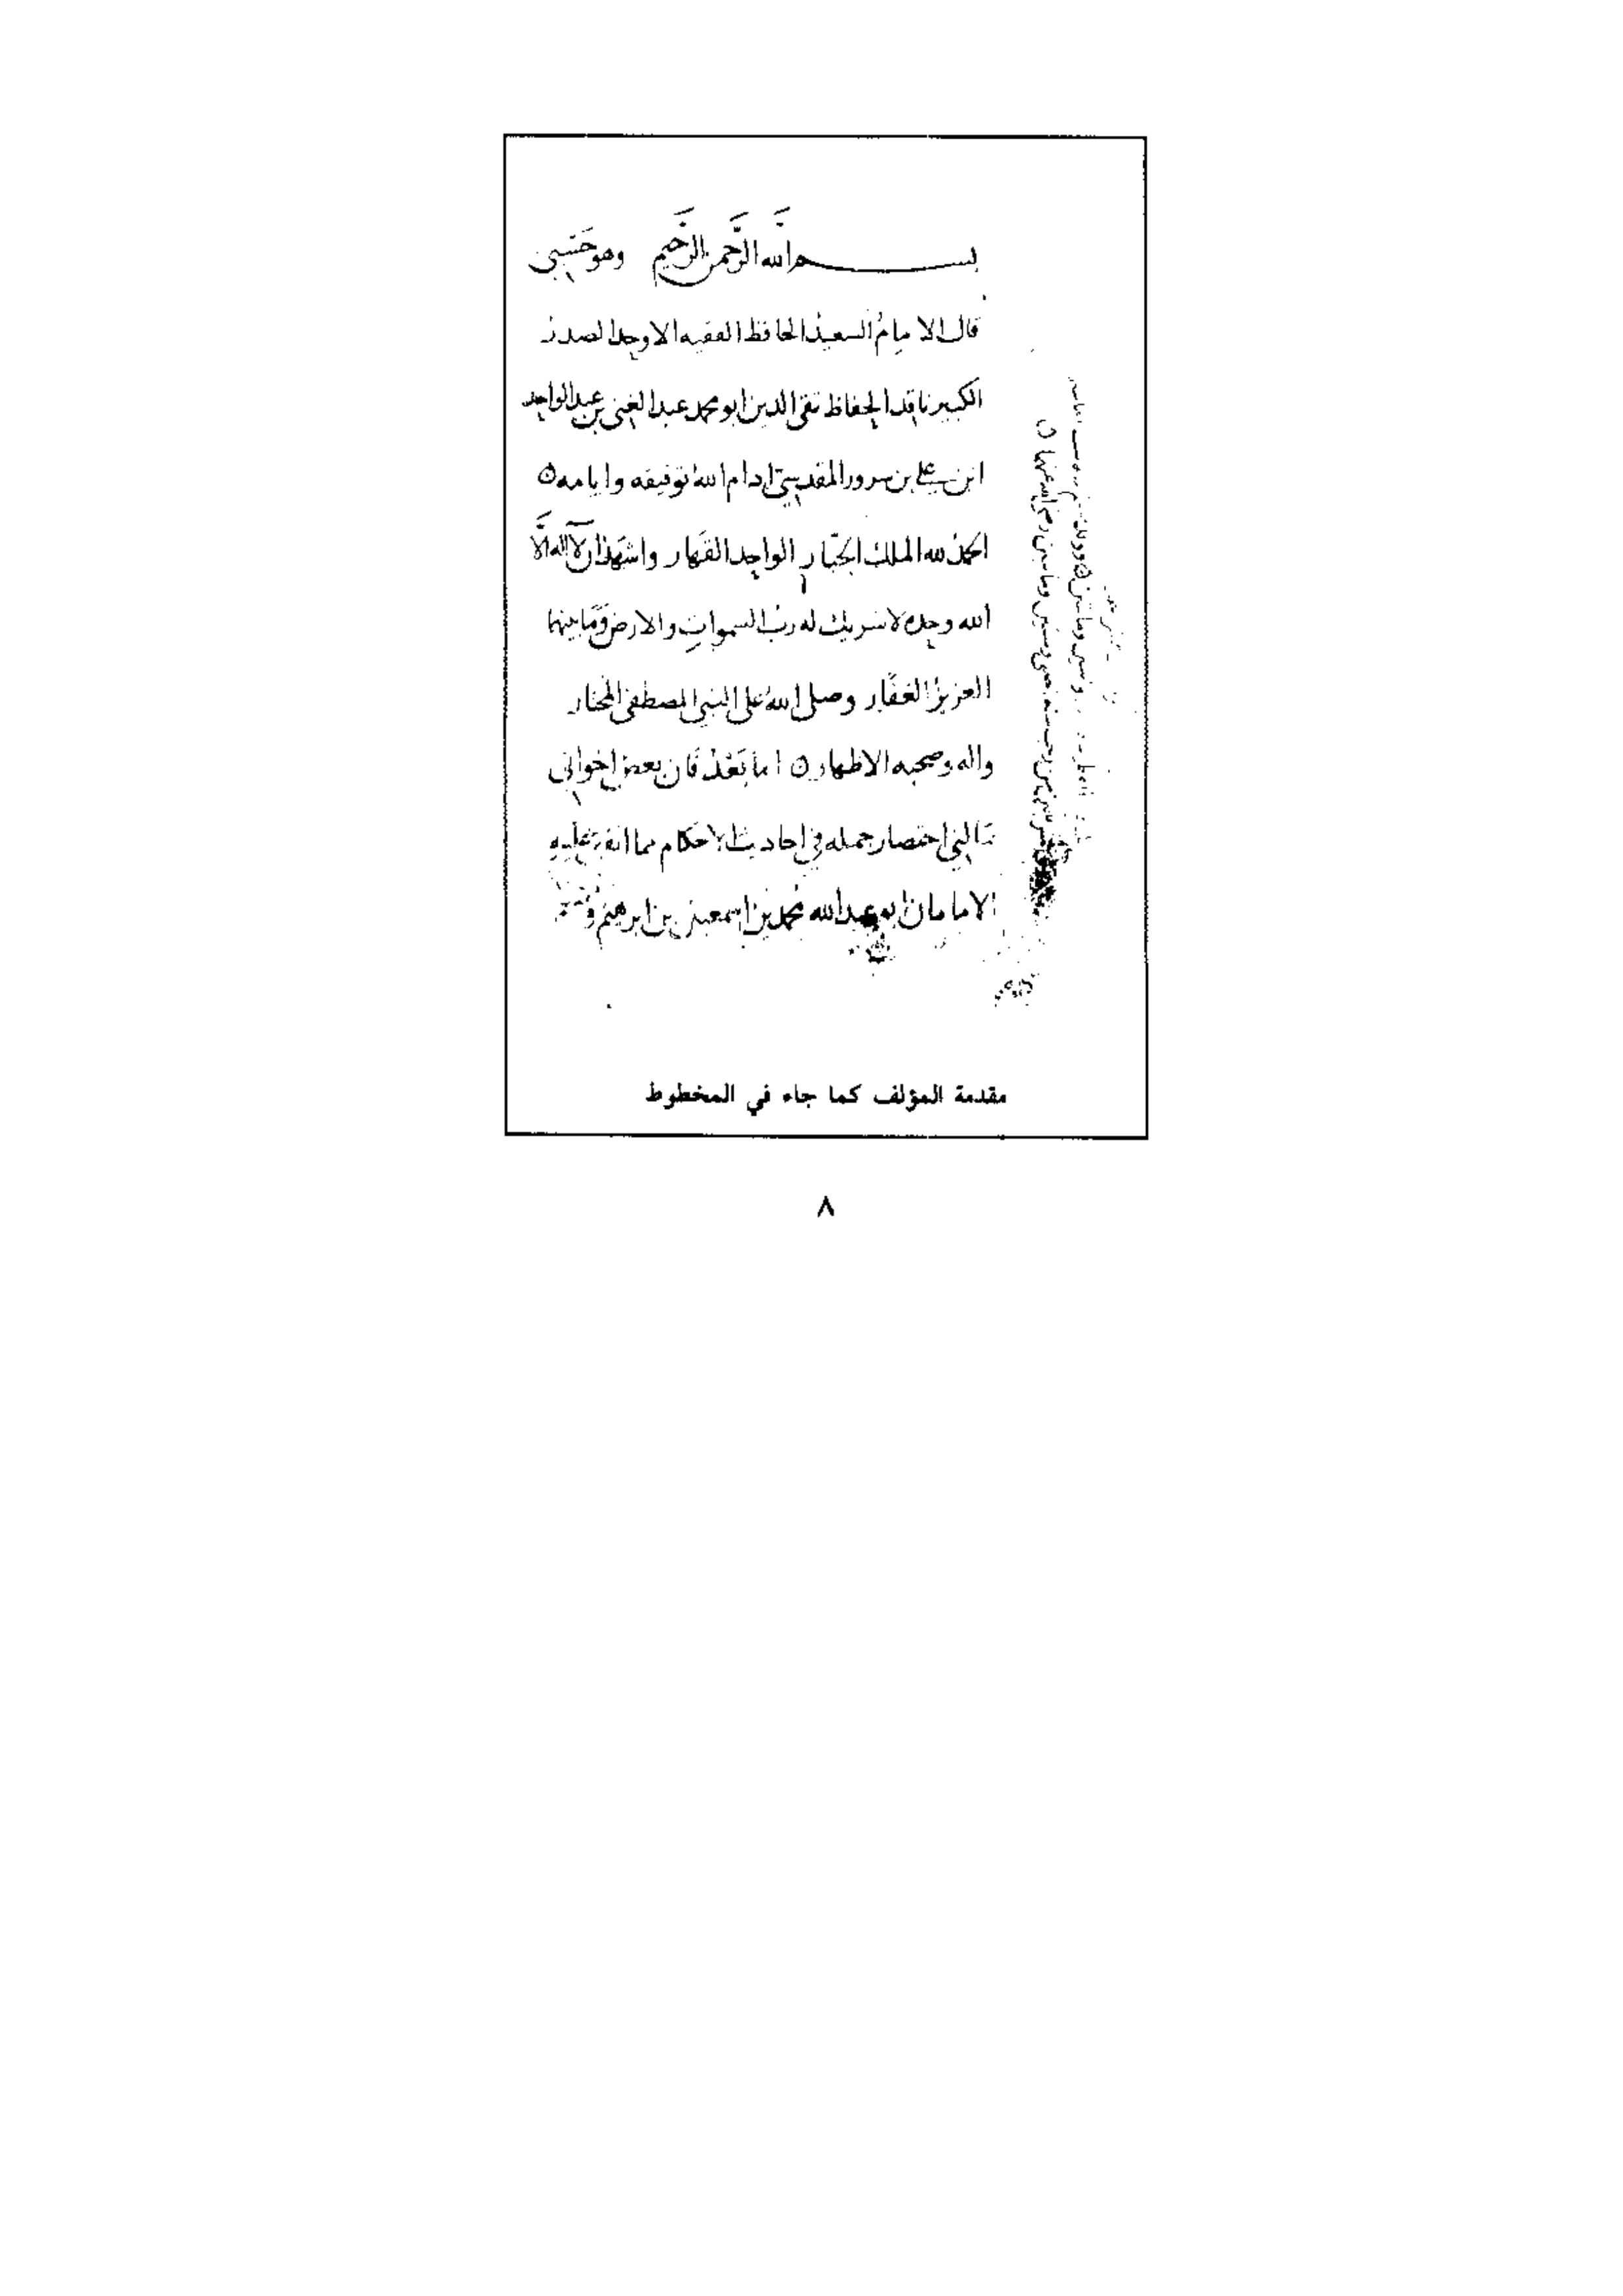 بسم الله الرَّحمن الرَّحيم وهو حَسْبي
قال الامامُ السعيد الحافظ الفقيه الاوحد الصدر
الكبير ناقد الحفاظ تقى الدين ابو محمد عبد الغنى بن عبد الواحد
ابن على بن سرور المقدسى ادام الله توفيقه وايامه ٥
الحمد لله الملك الجبّار الواحد القهار واشهد ان لا اله الا
الله وحده لا شريك له ربّ السموات والارض وَمَا بينهما
العزيز الغفّار وصلى الله على النبى المصطفى المختار
واله وصحبه الاطهار ٥ اما بَعْد فان بعض اخوانى
سَالنى اختصار جمله فى احاديث الاحكام مما اتفق عليه
الامامان ابو عبد الله محمد بن اسمعيل بن ابرهيم
مقدمة المؤلف كما جاء في المخطوط
٨